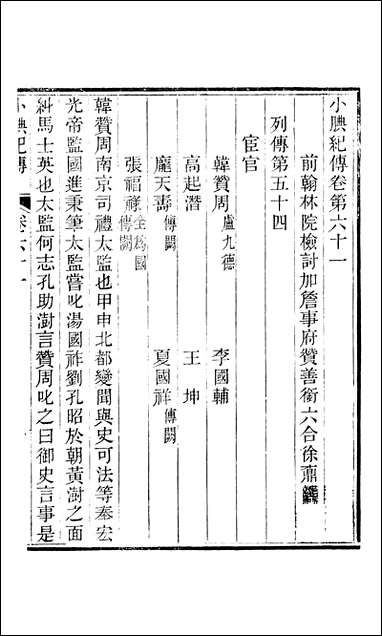 小腆紀傳卷第六十一
前翰林院檢討加詹事府贊善銜六合徐鼒譔
列傳第五十四
宦官
韓贊周 盧九德 李國輔
高起潛 王坤
龐天壽 傳闕 夏國祥 傳闕
張福祿 全為國 傳闕
韓贊周南京司禮太監也甲申北都變聞與史可法等奉宏
光帝監國進秉筆太監嘗叱湯國祚劉孔昭於朝黃澍之面
糾馬士英也太監何志孔助澍言贊周叱之曰御史言事是
小腆紀傳 卷六十一 一